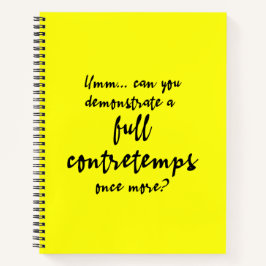 Umm... can you
demonstrate a
full
contretemps
once more?